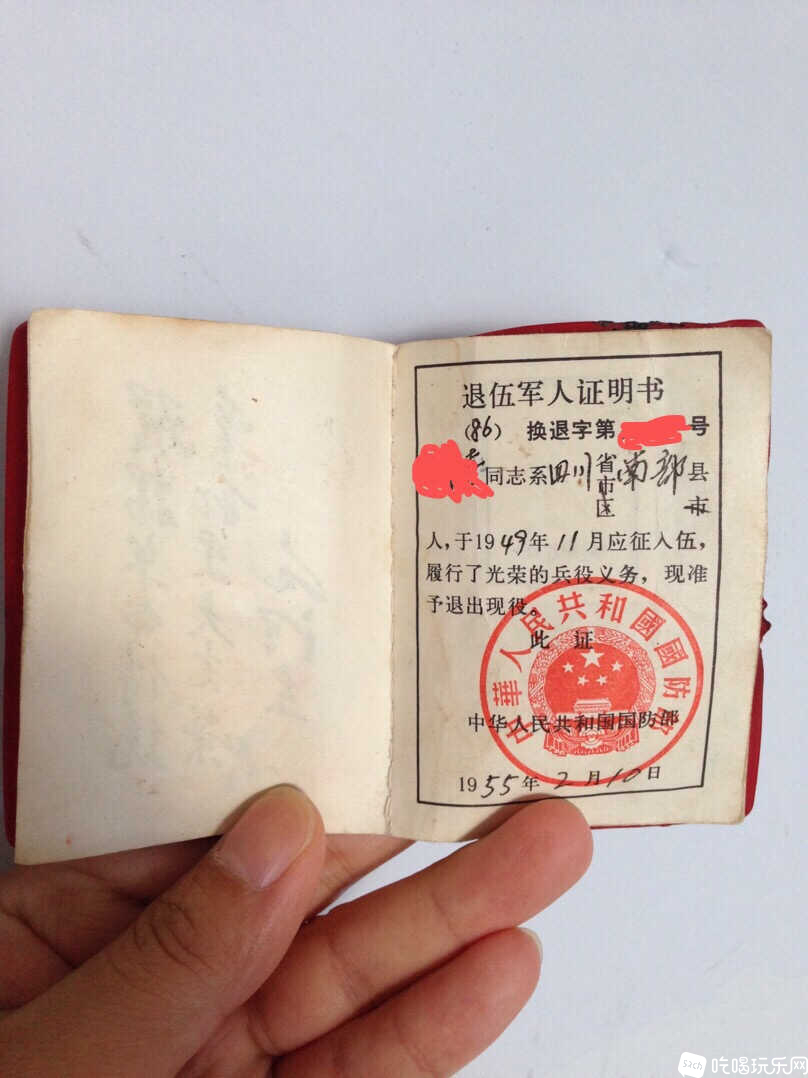 退伍军人证明书
（86）换退字第 号
同志系四川省市区南部县市
人，于1949年11月应征入伍，
履行了光荣的兵役义务，现准
予退出现役。
此证
中華人民共和國國防部
中华人民共和国国防部
1955年2月10日
吃喝玩乐网